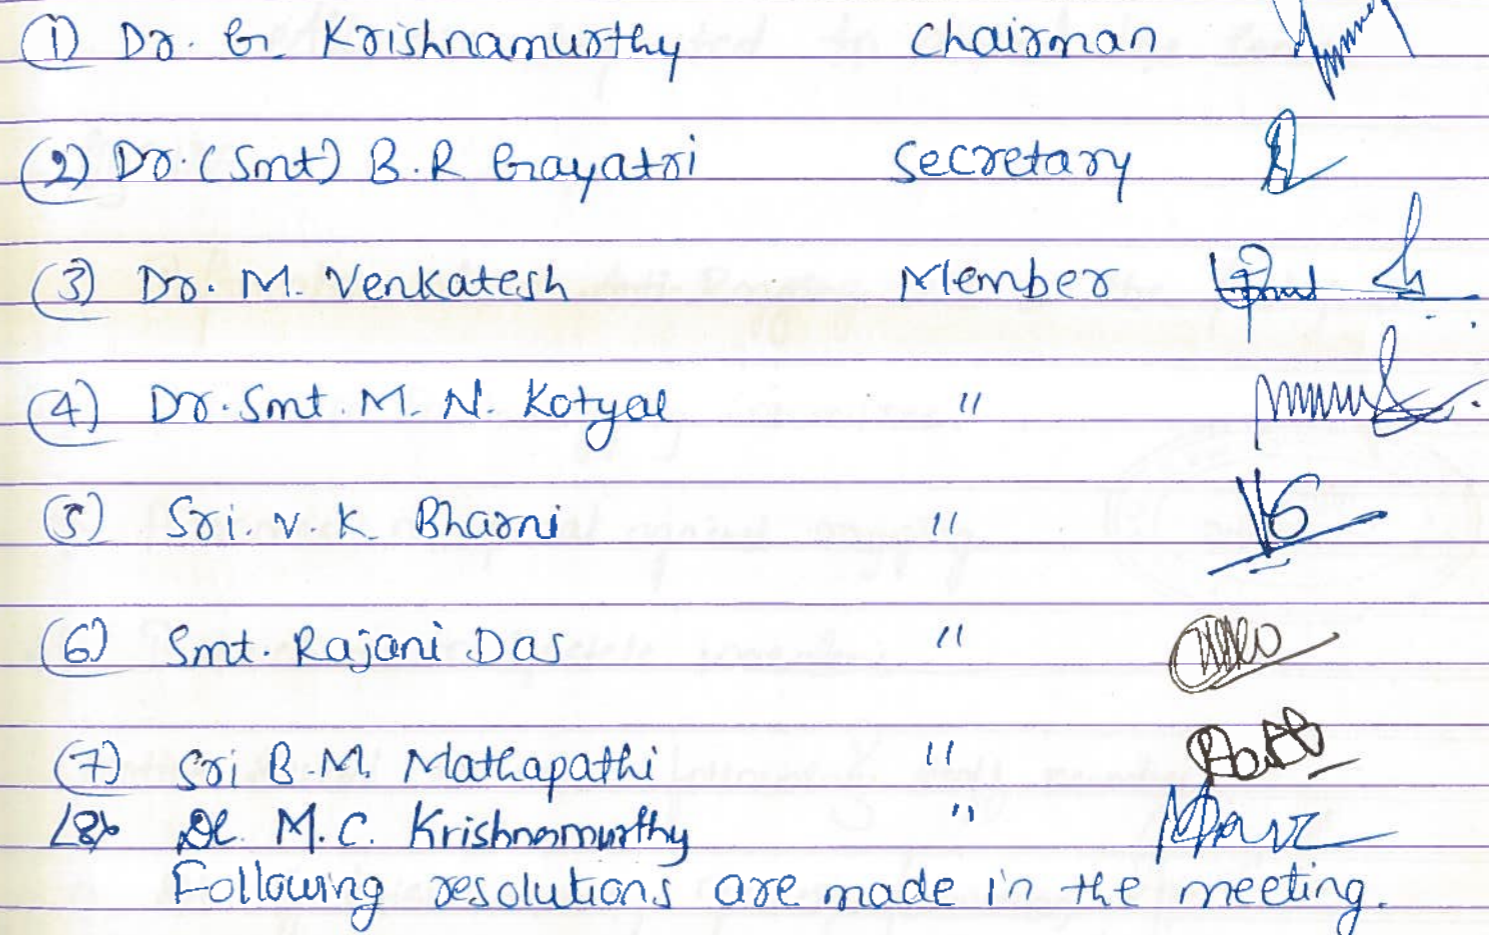 (1) Dr. G. Krishnamurthy Chairman
(2) Dr. (Smt) B.R Gayatri Secretary
(3) Dr. M. Venkatesh Member
(4) Dr. Smt. M. N. Kotyal "
(5) Sri. V. K. Bharni "
(6) Smt. Rajani Das "
(7) Sri B.M. Mathapathi "
(8) Dr. M.C. Krishnamurthy "
Following resolutions are made in the meeting.